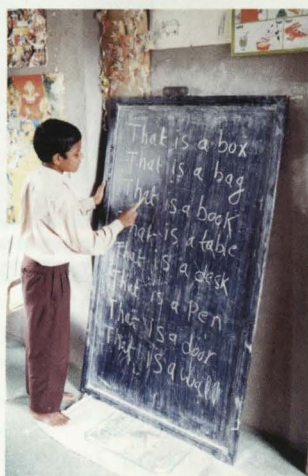 That is a box
That is a bag
That is a book
That is a table
That is a desk
That is a Pen
That is a door
That is a wall